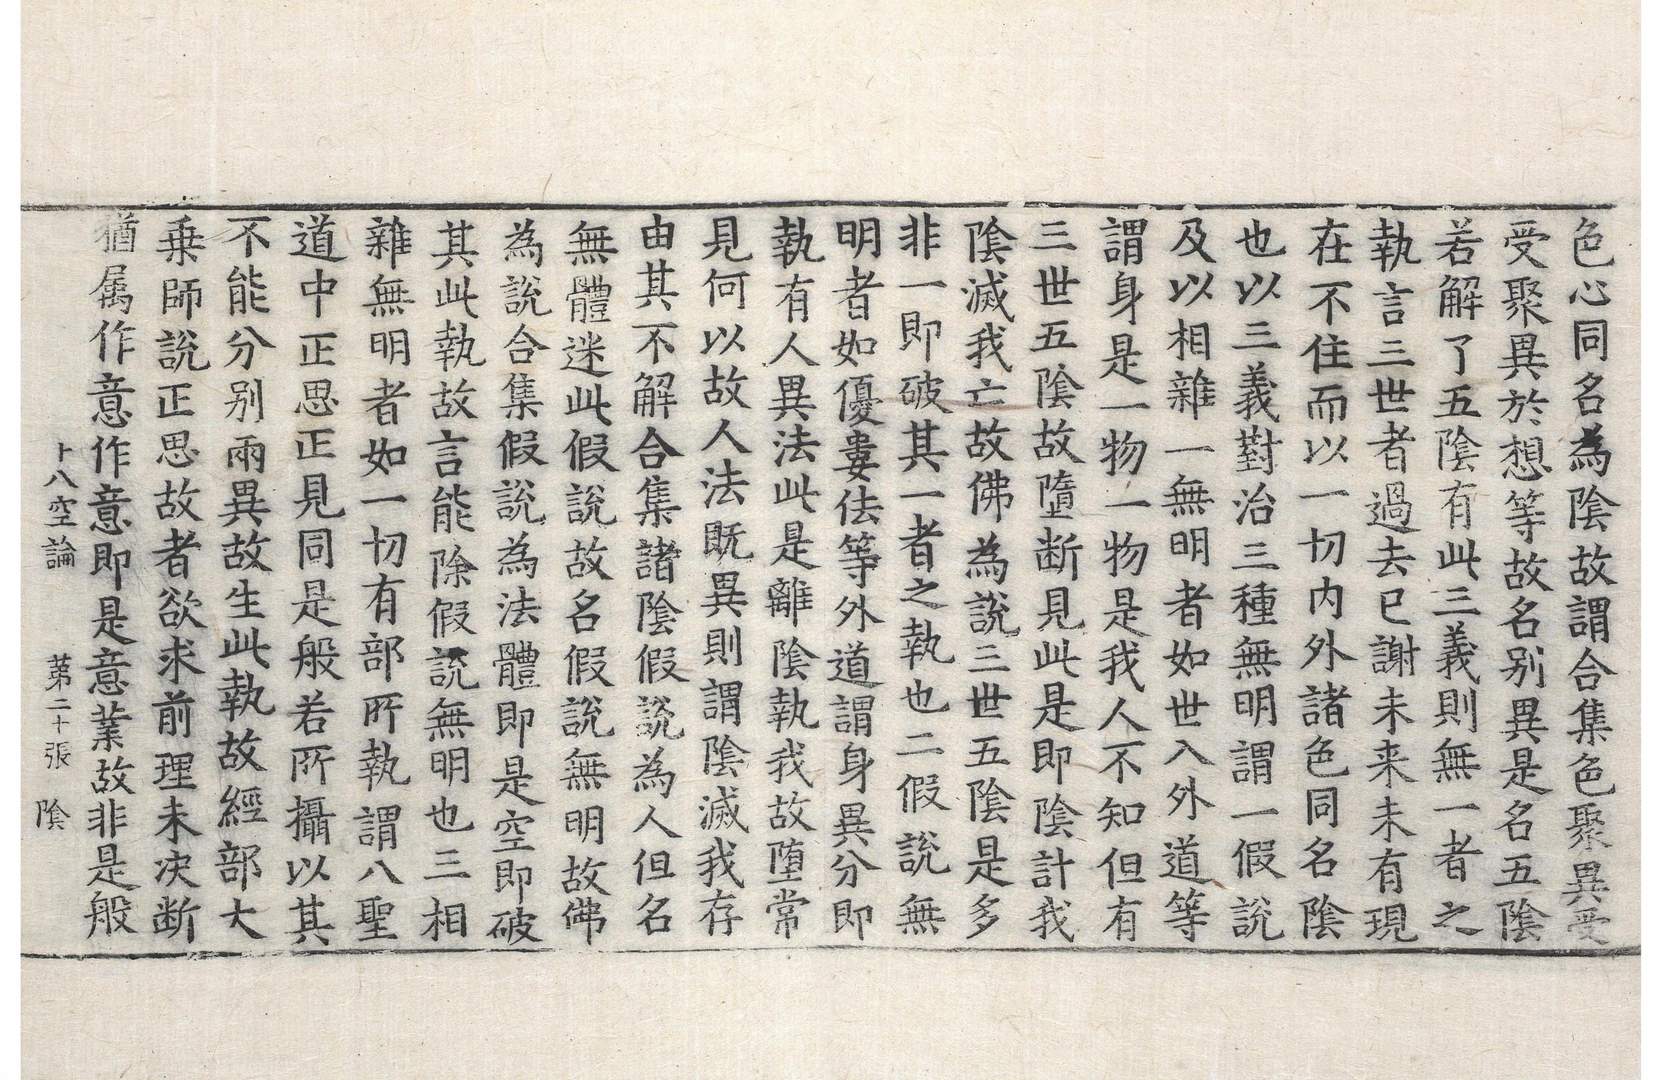 色心同名為陰故謂合集色聚異受
受聚異於想等故名別異是名五陰
若解了五陰有此三義則無一者之
執言三世者過去已謝未来未有現
在不住而以一切内外諸色同名陰
也以三義對治三種無明謂一假說
及以相雜一無明者如世入外道等
謂身是一物一物是我人不知但有
三世五陰故墮断見此是即陰計我
陰滅我亡故佛為說三世五陰是多
非一即破其一者之執也二假說無
明者如優婁佉等外道謂身異分即
執有人異法此是離陰執我故墮常
見何以故人法既異則謂陰滅我存
由其不解合集諸陰假說為人但名
無體迷此假說故名假說無明故佛
為說合集假說為法體即是空即破
其此執故言能除假說無明也三相
雜無明者如一切有部所執謂八聖
道中正思正見同是般若所攝以其
不能分別兩異故生此執故經部大
乗師說正思故者欲求前理未决断
猶属作意作意即是意業故非是般
十八空論 第二十張 陰